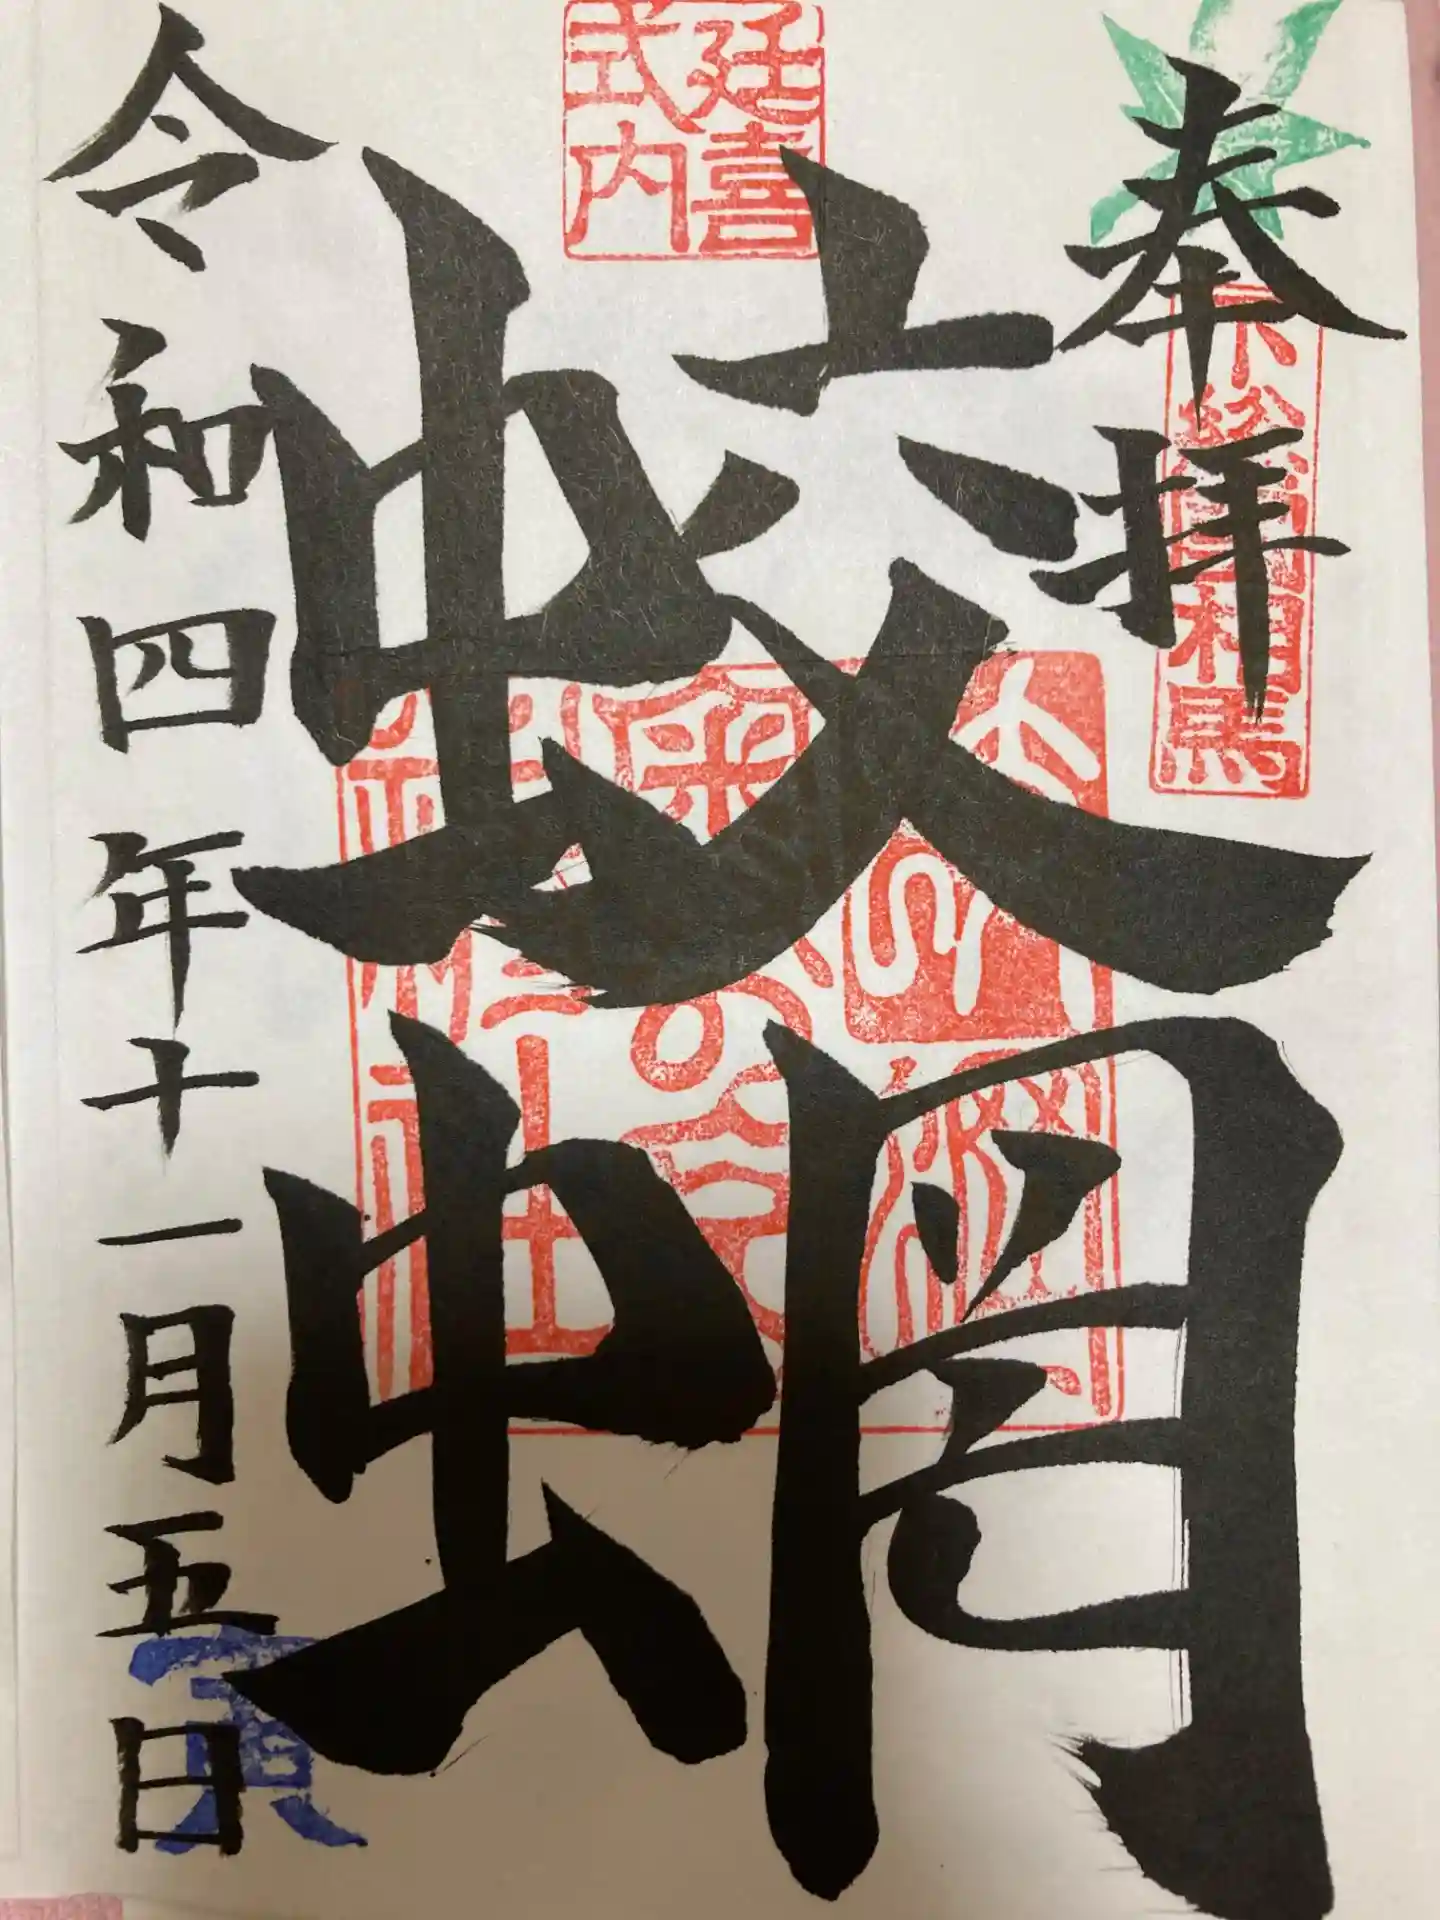 奉拝
下総国相馬
延喜
式内
蛟蝄
令和四年十一月五日
寅